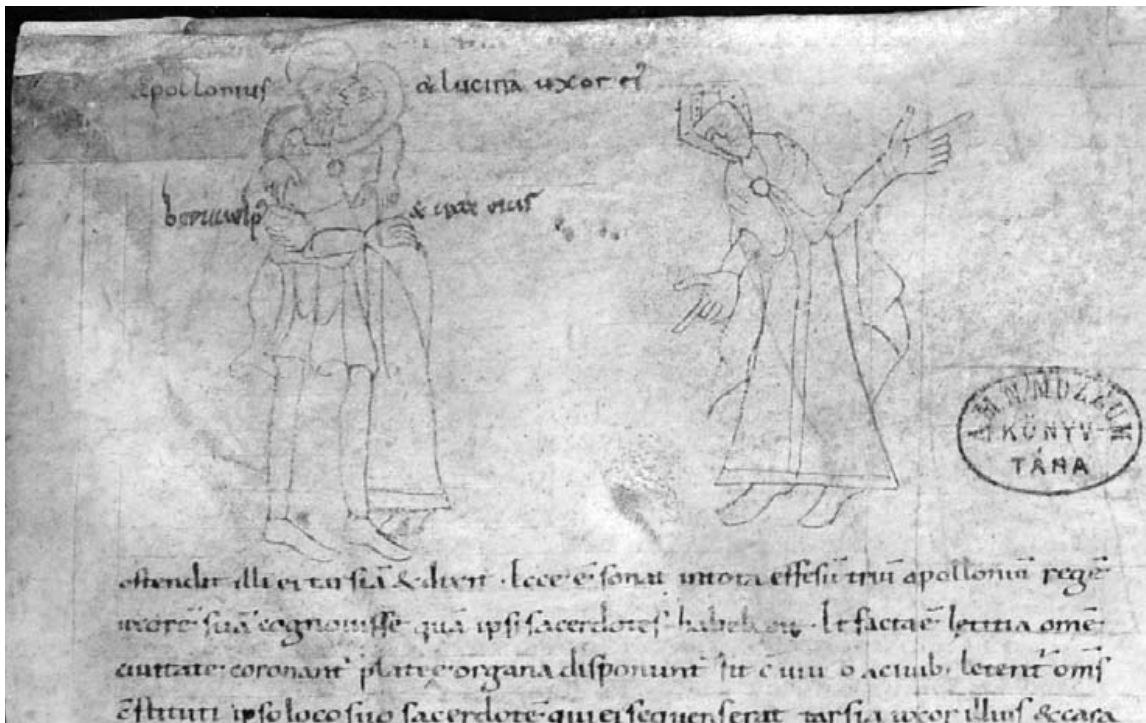 apollonius & lucina uxor ei᾽
& uxor eius
M.N. MUZEUM
KÖNYV-
TÁRA
ostendit illi et tarsiā & dixit · Ecce ē sonat intota effesū tyriū apolloniū regē
uxorē suā cognouisse quā ipsi sacerdotes habebant · Et facta ē letitia omē
ciuitate · coronant᾽ platee · organa disponunt᾽ fit c uiu o aciuib · letent᾽ om̄s
Estituti ipso loco suo sacerdotē qui ei sequens erat tarsia uxor illius & cara